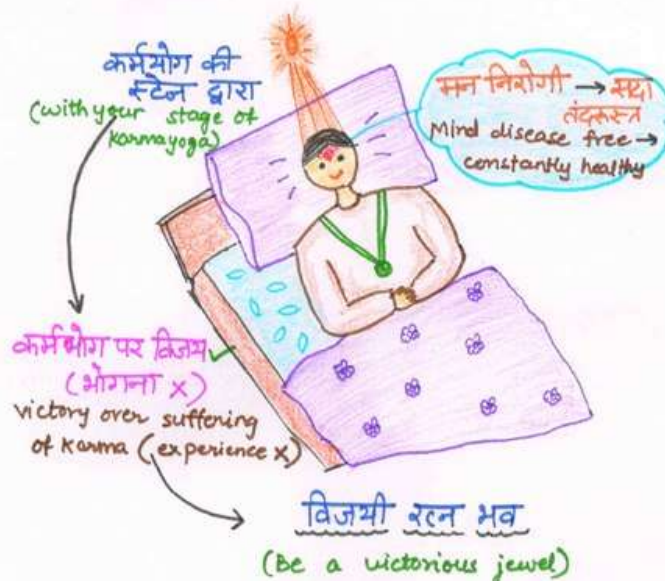 कर्मयोग की
स्टेज द्वारा
(with your stage of
karmayoga)
मन निरोगी → सदा
तंदरूस्त
Mind disease free →
constantly healthy
कर्मभोग पर विजय ✓
(भोगना x)
victory over suffering
of karma (experience x)
विजयी रत्न भव
(Be a victorious jewel)